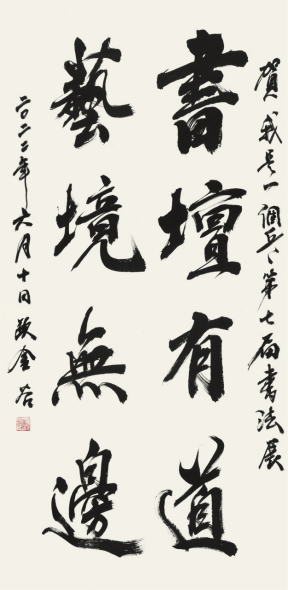 賀我是一個兵第七届書法展
書壇有道
藝境無邊
二〇二二年六月十日